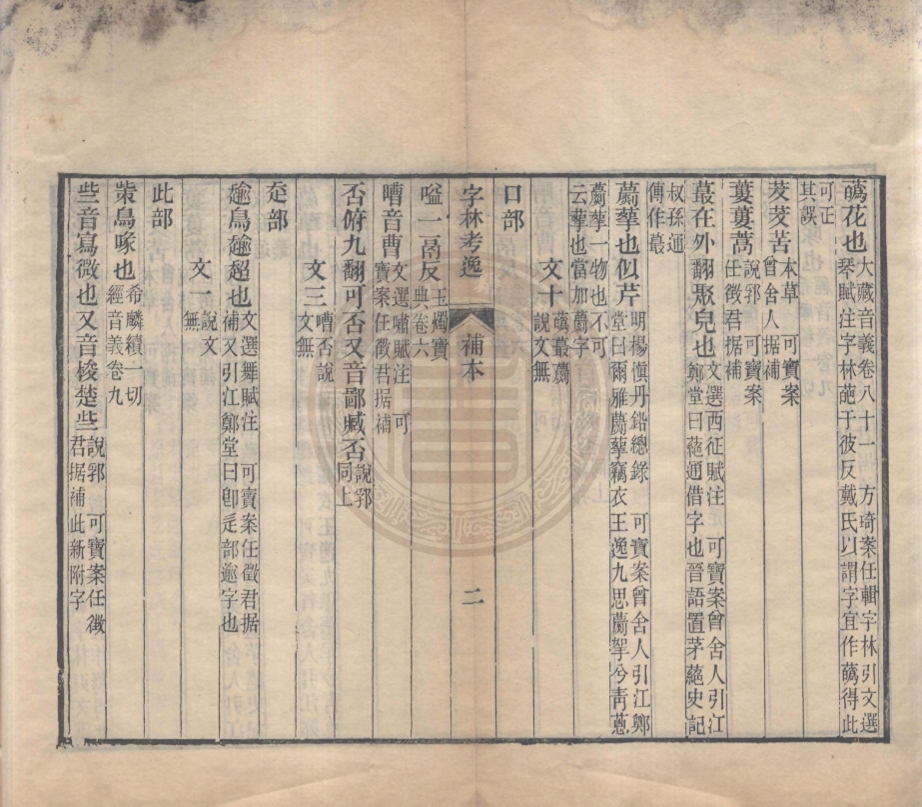 蘤花也大藏音義卷八十一 方琦案任輯字林引文選琴賦注字林葩于彼反戴氏以謂字宜作蘤得此
可正其誤
茭茭苦本草 可寶案曾舍人據補
蔞蔞蒿說郛 可寶案任徵君据補
蕞在外翻聚皃也文選西征賦注 可寶案曾舍人引江鄭堂曰蕝通借字也晉語置茅蕝史記
叔孫通傳作蕞
藭也似芹明楊慎丹鉛總錄 可寶案曾舍人引江鄭堂曰爾雅竊衣王逸九思兮靑蔥
一物也不可云也當加字
文十蘤蕞說文無
口部
字林考逸 補本 二
嗌一鬲反玉燭寶典卷六
嘈音曹文選嘯賦注 可寶案任徵君据補
否俯九翻可否又音鄙臧否說郛同上
文三嘈否說文無
辵部
鳥也文選舞賦注 可寶案任徵君据補又引江鄭堂曰卽辵部字也
文一說文無
此部
鳥啄也希麟續一切經音義卷九
些音寫微也又音梭楚些說郛 可寶案任徵君据補此新附字